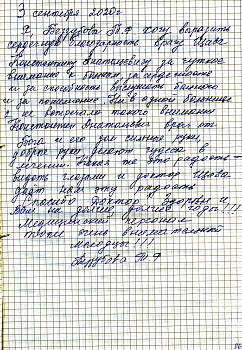 3 сентября 2020г
Я, Беззубова Т.Я хочу выразить
сердечную благодарность врачу Щава
Константину Анатольевичу за чуткое
внимание к больным, за сердечность
и за способность выслушать больного
и за понимание. Ни в одной больнице
я не встречала такого внимания
Константин Анатольевич врач от
Бога и его золотые руки
руки делают чудеса в
лечении. Какая же это радость
видеть глазами и доктор Щава
дает нам эту радость
Спасибо доктор Здоровья и
Вам на долгие долгие годы!!!
Медицинский персонал
тоже очень внимательный
молодцы!!!
Беззубова Т.Я
86